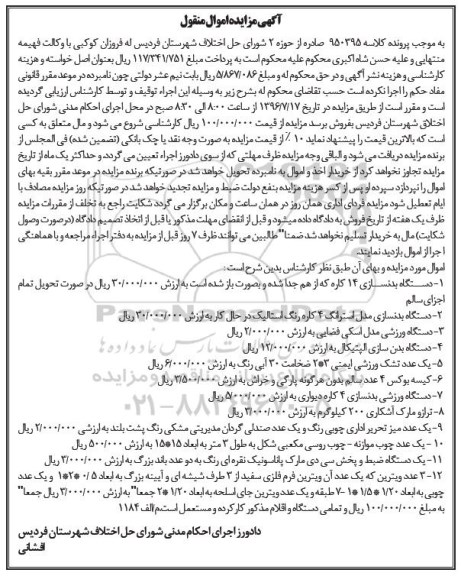 آگهی مزایده اموال منقول
به موجب پرونده کلاسه ۹۵۰۳۹۵ صادره از حوزه ۲ شورای حل اختلاف شهرستان فردیس له فروزان کوکبی با وکالت فهیمه
منتهایی و علیه حسن شاه اکبری محکوم علیه محکوم است به پرداخت مبلغ ۱۱۷/۳۴۱/۷۵۱ ریال بعنوان اصل خواسته و هزینه
کارشناسی و هزینه نشر آگهی و در حق محکوم له و مبلغ ۵/۸۶۷/۰۸۶ ریال بابت نیم عشر دولتی چون نامبرده در موعد مقرر قانونی
مفاد حکم را اجرا نکرده است حسب تقاضای محکوم له بشرح زیر به وسیله این اجراء توقیف و توسط کارشناس ارزیابی گردیده
است و مقرر است از طریق مزایده در تاریخ ۱۳۹۶/۷/۱۷ از ساعت ۸:۰۰ الی ۸:۳۰ صبح در محل اجرای احکام مدنی شورای حل
اختلاق شهرستان فردیس بفروش برسد مزایده از قیمت ۱۰۰/۰۰۰/۰۰۰ ریال کارشناسی شروع می شود و مال متعلق به کسی
است که بالاترین قیمت را پیشنهاد نماید ۱۰ ٪ از قیمت مزایده به صورت وجه نقد یا چک بانکی (تضمین شده) فی المجلس از
برنده مزایده دریافت می شود و الباقی وجه مزایده ظرف مهلتی که از سوی دادورز اجراء تعیین می گردد، و حداکثر یک ماه از تاریخ
مزایده تجاوز نخواهد کرد از خریدار اخذ و اموال به نامبرده تحویل خواهد شد در صورتیکه برنده مزایده در موعد مقرر بقیه بهای
اموال را نپردازد سپرده او پس از کسر هزینه مزایده بنفع دولت ضبط و مزایده تجدید خواهد شد در صورتیکه روز مزایده مصادف با
ایام تعطیل شود مزایده فردای اداری همان روز در همان ساعت و مکان برگزار می گردد شکایت راجع به تخلف از مقررات مزایده
ظرف یک هفته از تاریخ فروش به دادگاه داده میشود و قبل از انقضای مهلت مذکور یا قبل از اتخاذ تصمیم دادگاه (در صورت وصول
شکایت) مال به خریدار تسلیم نخواهد شد ضمنا" طالبین می توانند ظرف ۷ روز قبل از مزایده به دفتر اجراء مراجعه و با هماهنگی
اجرا از اموال بازدید نمایند.
اموال مورد مزایده و بهای آن طبق نظر کارشناس بدین شرح است:
۱- دستگاه بدنسازی ۱۴ کاره که از هم جدا شده و بصورت باز شده است به ارزش ۳۰/۰۰۰/۰۰۰ ریال در صورت تحویل تمام
اجزای سالم
۲- دستگاه بدنسازی مدل استرانگ ۴ کاره رنگ استالیک در حال کار به ارزش ۳۰/۰۰۰/۰۰۰ ریال
۳- دستگاه ورزشی مدل اسکی فضایی به ارزش ۲/۰۰۰/۰۰۰ ریال
۴- دستگاه بدن سازی الپتیکال به ارزش ۱۲/۰۰۰/۰۰۰ ریال
۵- یک عدد تشک ورزشی ایمنی ۳*۲ ضخامت ۳۰ آبی رنگ به ارزش ۶/۰۰۰/۰۰۰ ریال
۶- کیسه بوکس ۴ عدد سالم بدون هرگونه پارگی و خراش به ارزش ۳/۵۰۰/۰۰۰ ریال
۷- دستگاه ورزشی بدنسازی ۴ کاره دیواری به ارزش ۵/۰۰۰/۰۰۰ ریال
۸- ترازو مارک آشکاری ۲۰۰ کیلوگرم به ارزش ۳/۰۰۰/۰۰۰ ریال
۹- یک عدد میز تحریر اداری چوبی رنگ و یک عدد صندلی گردان مدیریتی مشکی رنگ پشت بلند به ارزشی ۲/۰۰۰/۰۰۰ ریال
۱۰ - یک عدد چوب موازنه - چوب روسی مکعبی شکل به طول ۳ متر به ابعاد ۱۵*۱۵ به ارزش ۵۰۰/۰۰۰ ریال
۱۱- یک دستگاه ضبط و پخش سی دی مارک پاناسونیک نقره ای رنگ به دو عدد باند بزرگ به ارزش ۳/۰۰۰/۰۰۰ ریال
۱۲- ۳ عدد ویترین که یک عدد آن ویترین فرم فلزی سفید از ۳ طرف شیشه ای و آیینه بزرگ به ابعاد ۰/۵ *۲*۱ و یک عدد
چوبی به ابعاد ۱/۲۰ *۱/۵ *۱ -۷ طبقه و یک عدد ویترین جای اسلحه به ابعاد ۱/۲۰ *۲ جمعا" به ارزش ۳/۰۰۰/۰۰۰ ریال جمعا"
به مبلغ ۱۰۰/۰۰۰/۰۰۰ ریال و تمامی دستگاه و اقلام مذکور کارکرده و مستعمل است.م/الف ۱۱۸۴
دادورز اجرای احکام مدنی شورای حل اختلاف شهرستان فردیس
افشانی